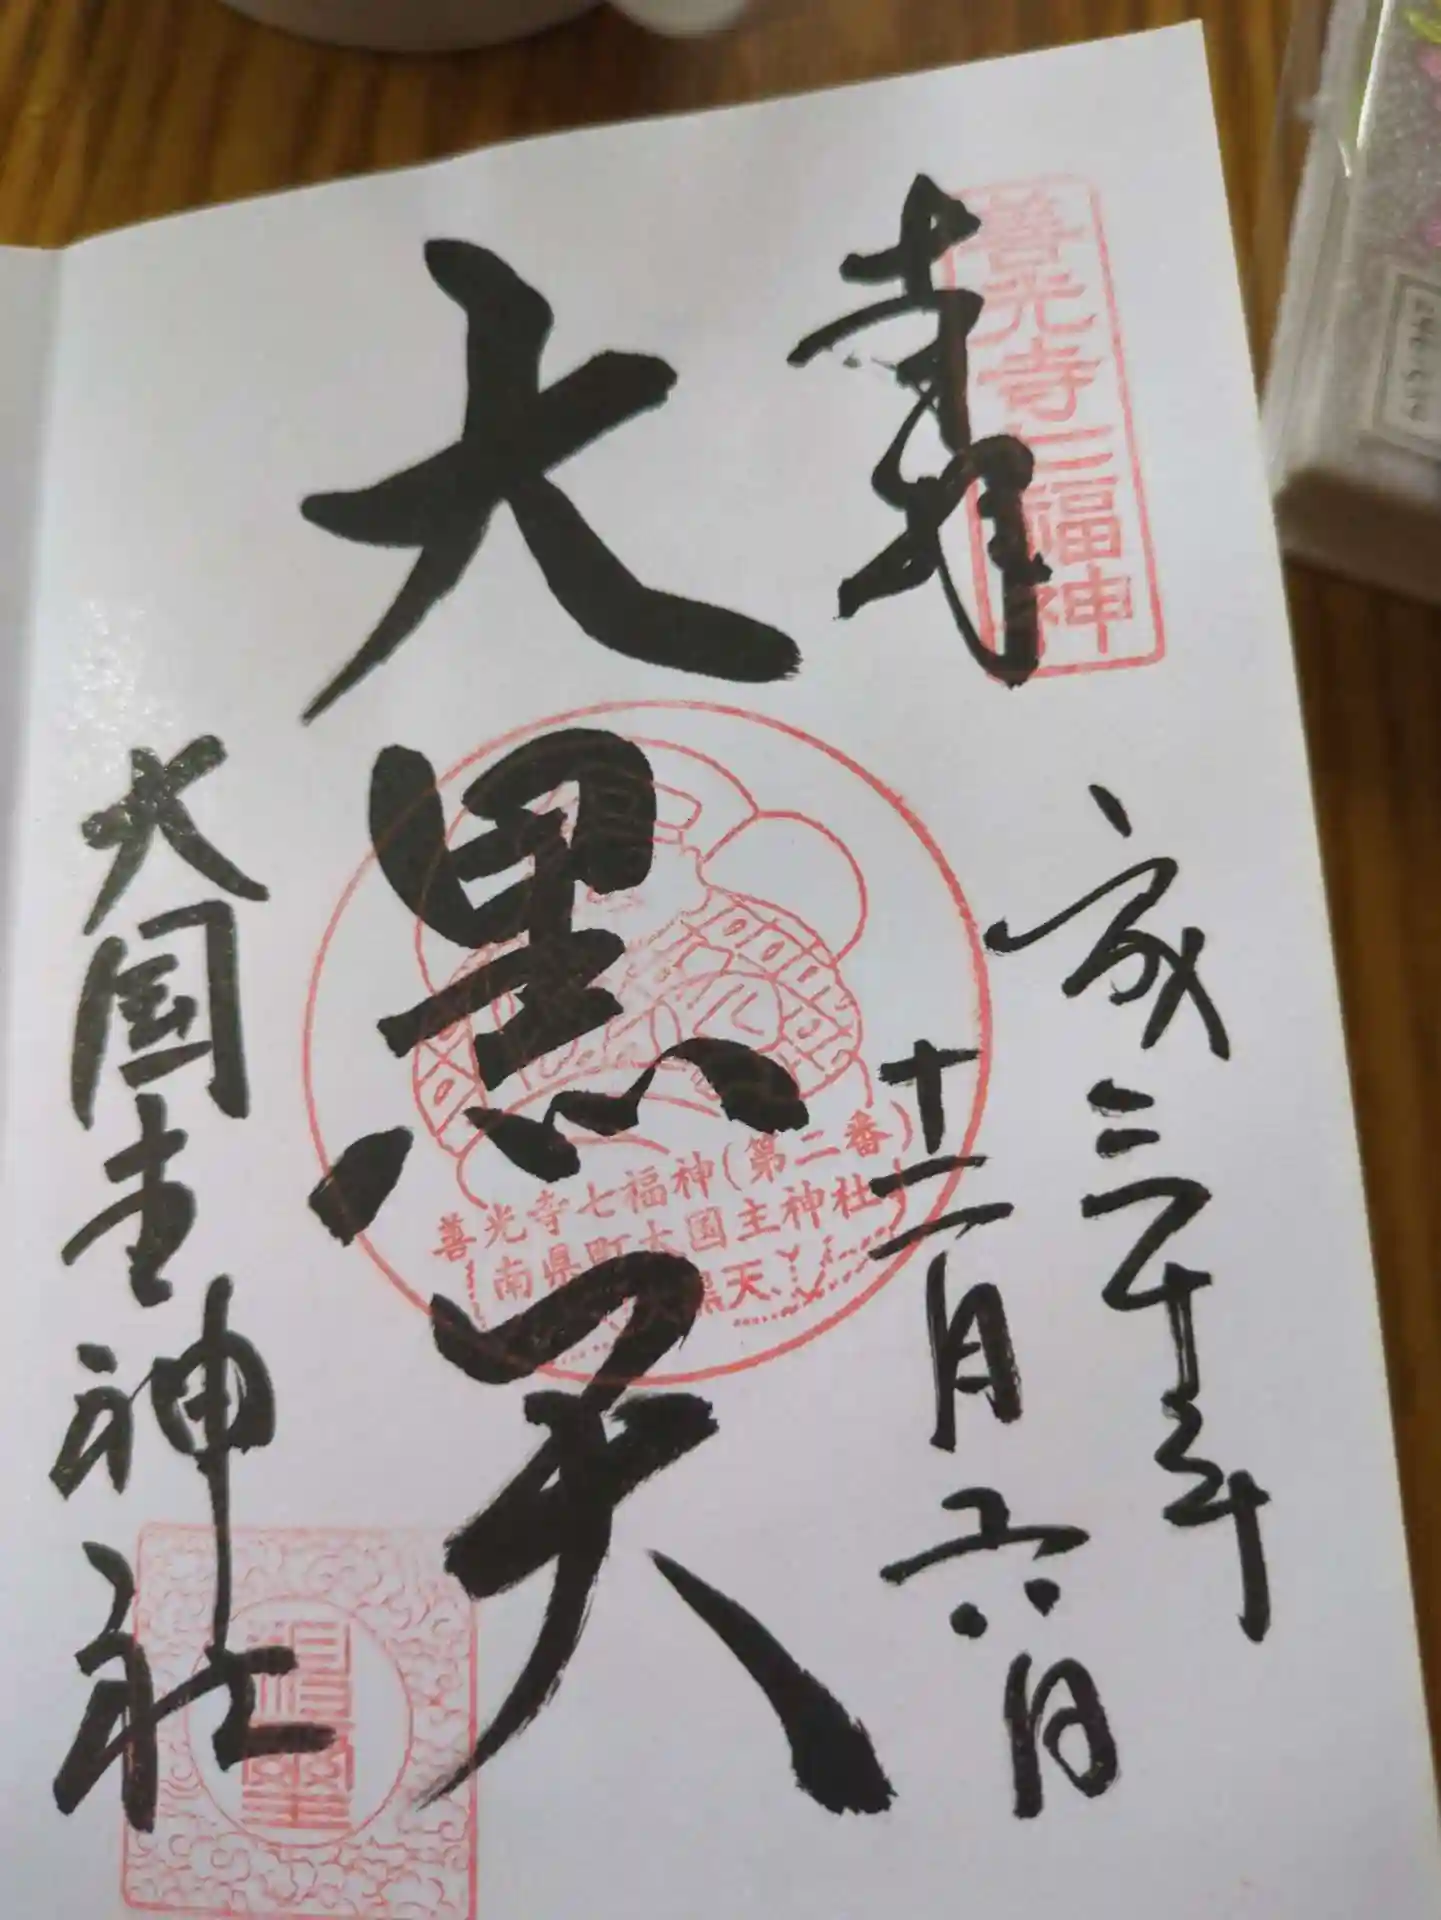 奉拝
善光寺七福神
平成三十年
十二月六日
大黒天
善光寺七福神(第二番)
南県町大国主神社
大黒天
大国主神社